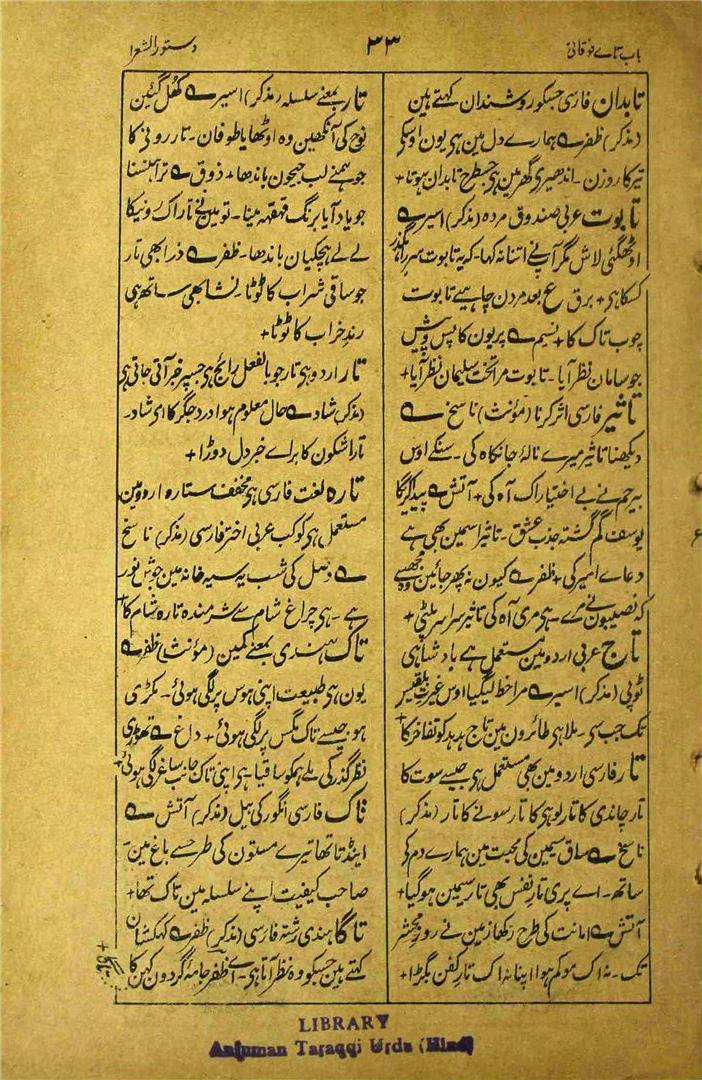 باب تاے فوقانی
۳۳
دستور الشعرا
تابدان فارسی جسکو روشندان کہتے ہین
(مذکر) ظفر ؎ ہمارے دل مین ہی یون اوسکی
تیر کا روزن۔ اندھیری گھر مین ہی جسطرح تابدان ہوتا+
تابوت عربی صندوق مردہ (مذکر) اسیر ؎
اوٹھگئی لاش مگر آپنے اتنا نہ کہا۔ کہ یہ تابوت سر راہگذر
کسکا ہی + برق ع بعد مردن چاہیے تابوت
چوب تاک کا + نسیم ؎ پریون کا پس و پیش
جو سامان نظر آیا۔ تابوت مرا تخت سلیمان نظر آیا+
تاثیر فارسی اثر کرنا (مؤنث) ناسخ ؎
دیکھنا تاثیر میرے نالۂ جانکاہ کی۔ سنکے اوس
بیرحم نے بے اختیار اک آہ کی + آتش ؎ پیدا کریگا
یوسف گم گشتہ جذب عشق۔ تاثیر اسمین بھی ہے
دعاے اسیر کی + ظفر ؎ کیون نہ پھر جائین مجھسے وہ
کہ نصیبون نے مرے۔ ہی مری آہ کی تاثیر سراسر پلٹی +
تاج عربی اردو مین مستعمل ہے بادشاہی
ٹوپی (مذکر) اسیر ؎ مرا خط لیگیا اوس غیرت بلقیس
تک جب سی۔ ملا ہی طائرون مین تاج ہدہد کو تفاخر کا+
تار فارسی اردو مین بھی مستعمل ہی جیسے سوت کا
تار چاندی کا تار لوہی کا تار سونے کا تار (مذکر)
ناسخ ؎ ساق سیمین کی محبت مین ہمارے دم کی
ساتھ۔ اے پری تار نفس بھی تار سیمین ہو گیا+
آتش ؎ امانت کی طرح رکھا زمین نے روز محشر
تک۔ نہ اک مو کم ہوا اپنا نہ اک تار کفن بگڑا+
تار بمعنے سلسلہ (مذکر) اسیر ؎ کھل گئین
نوح کی آنکھین وہ اوٹھا یا طوفان۔ تار رونی کا
جو ہمنے لب جیحون باندھا + ذوق ؎ ترا ہنسنا
جو یاد آیا برنگ قہقہہ مینا۔ تو مین نے تار اک رونیکا
لے لے ہچکیان باندھا۔ ظفر ؎ ذرا بھی تار
جو ساقی شراب کا ٹوٹا۔ نشا بھی ساتھ ہی
رند خراب کا ٹوٹا+
تار اردو ہی تار جو بالفعل رائج ہی جسپر خبر آتی جاتی ہی
(مذکر) شاد ؎ حال معلوم ہوا درد جگر کا ای شاد۔
تار اشکون کا براے خبر دل دوڑا +
تارہ لغت فارسی ہی مخفف ستارہ اردو مین
مستعمل ہی کوکب عربی اختر فارسی (مذکر) ناسخ
؎ وصل کی شب یہ سیہ خانہ مین جوش نور
ہے۔ ہی چراغ شام سے شرمندہ تارہ شام کا+
تاک ہندی بمعنے کمین (مؤنث) ظفر ؎
یون ہی طبیعت اپنی ہوس پر لگی ہوئی۔ مکڑی
ہو جیسے تاک مگس پر لگی ہوئی + داغ ؎ تھوڑی
نظر گذر کی ملے ہمکو ساقیا۔ ہی اپنی تاک جانب ساغر لگی ہوئی+
تاک فارسی انگور کی بیل (مذکر) آتش ؎
اینڈتا تھا تیرے مستون کی طرح سے باغ مین۔
صاحب کیفیت اپنے سلسلہ مین تاک تھا+
تاگا ہندی رشتہ فارسی (مذکر) ظفر ؎ کہکشان
کہتے ہین جسکو وہ نظر آتا ہی۔ اے ظفر جامہ گردون کہن کا
LIBRARY
Anjuman Taraqqi Urdu (Hind)